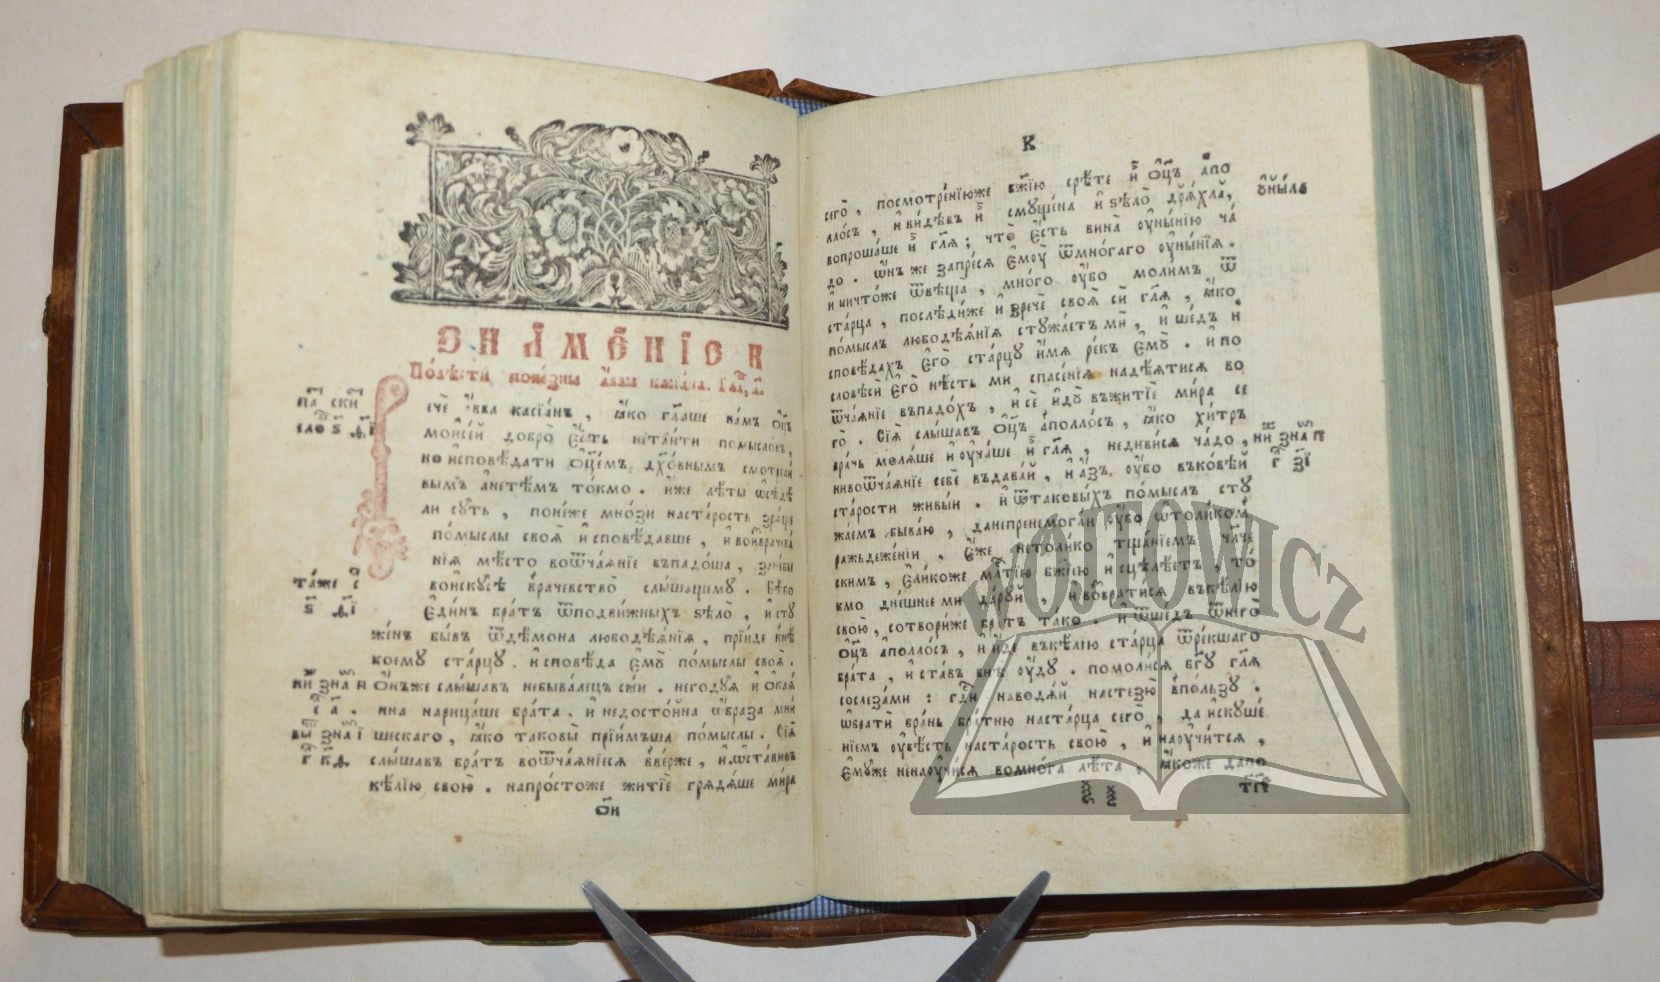 ЗНАМЕНІЕ К
По́вѣсти поле́зны а҆́ввы касїа́на. гла҃, к҃.
ече а҆́вва касїа́нъ, ꙗ҆́ко гл҃аше на́мъ ѻ҆ц҃ъ
моѵсе́й добро̀ є҆́сть нетаи́ти помы́словъ,
но и҆сповѣ́дати ѻ҆ц҃е́мъ дх҃о́внымъ смотрели
вы́мъ. а҆нетѣ́мъ то́кмо. и҆̀же лѣ́ты ѡ҆сѣдѣ
ли су́ть, поне́же мно́зи наста́рость зра́ще
по́мыслы своѧ̀ и҆сповѣ́давше, и҆ вои҆врачева́
нїѧ мѣ́сто воѿча́ѧнїе въпадо́ша, за́небы
вои҆ску́сѣ врачевство̀ слы́шащему. бѣ́бо
є҆ди́нъ бра́тъ ѿподви́жныхъ ѕѣлѡ̀, и҆ сту
же́нъ бы́въ ѿде́мона любодѣѧ́нїѧ, прїи́де кнѣ
коему ста́рцу. и҆сповѣ́да є҆мꙋ̀ по́мыслы своѧ̀.
ѻ҆́нъже слы́шавъ небыва́лецъ сы́и. негоду́ѧ и҆ ѻ҆каѧ́
нна нарица́ше бра́та. и҆ недосто́йна ѻ҆́браза мни
шескаго, ꙗ҆́ко таковы̀ прїи́мъша по́мыслы. сїѧ̀
слы́шавъ бра́тъ воѿча́ѧнїесѧ вве́рже, и҆ ѡ҆ста́вивъ
ке́лїю свою̀. напро́стоже житїѐ грѧдѧ́ше ми́ра
ѻ҆́и
К
сего̀, посмотре́нїюже бж҃їю срѣ́те и҆̀ ѻ҆ц҃ъ а҆по
лло́съ, и҆ ви́дѣвъ и҆̀ смуще́на и҆ ѕѣлѡ̀ дрѧ́хла,
вопроша́ше и҆̀ гл҃ѧ; что̀ є҆́сть вина̀ оу҆ны́нїю ча́
до. ѻ҆́нъ же запре́сѧ є҆мꙋ̀ ѿмно́гаго оу҆ны́нїѧ.
и҆ ничто́же ѿвѣща̀, мно́го оу҆́бо молимъ ѿ
ста́рца, послѣ́диже и҆зречѐ своѧ̀ си̑ гл҃ѧ, ꙗ҆́ко
по́мыслъ любодѣѧ́нїѧ стужа́етъ ми̑, и҆ ше́дъ и҆
споведахъ є҆го̀ ста́рцу и҆́мѧ ре́къ є҆му̀. и҆ по
словеси̑ є҆го̀ нѣ́сть ми спасе́нїѧ надѣѧ́тисѧ во
ѿча́ѧнїе въпадо́хъ, и҆ се и҆ду̀ въжитїѐ ми́ра се
го̀. сїѧ̀ слы́шавъ ѻ҆ц҃ъ а҆полло́съ, ꙗ҆́ко хи́тръ
вра́чь молѧ́ше и҆ оу҆ча́ше и҆̀ гл҃ѧ, недиви́сѧ ча́до,
нивоѿча́ѧнїе себѐ въдава́й, и҆ а҆́зъ оу҆́бо въковѣ́й
ста́рости живы́и. и҆ ѿтаковы́хъ по́мыслъ сту
жа́емъ быва́ю, данепренемога́й оу҆́бо ѿтоли́комъ
ражьдеже́нїи, є҆́же нетоли́ко тща́нїемъ ч҃лче
скимъ, є҆ли́коже мл҃тїю бж҃їею и҆сцѣлѣ́етъ, то́
кмо дне́шнее ми да́руй, и҆ вобрати́сѧ въке́лїю
свою̀, сотвори́же бра́тъ та́ко. и҆ ѿше́дъ ѿнего̀
ѻ҆ц҃ъ а҆полло́съ, и҆ и҆́де въке́лїю ста́рца ѿре́кшаго
бра́та, и҆ ста́въ внѣ̀ оу҆́ду. помоли́сѧ бг҃у гл҃ѧ
сослеза́ми: гд҃и наводѧ́й настезю̀ впо́льзу.
ѡ҆брати̑ бра́нь бра́тню наста́рца сего̀, да и҆скуше́
нїемъ оу҆вѣ́сть наста́рость свою̀, и҆ наоу҆чи́тсѧ,
є҆му́же ненаоу҆чи́сѧ вомно́га лѣ́та, ꙗ҆́коже дапо
оу҆ны́ло
WOJTOWICZ